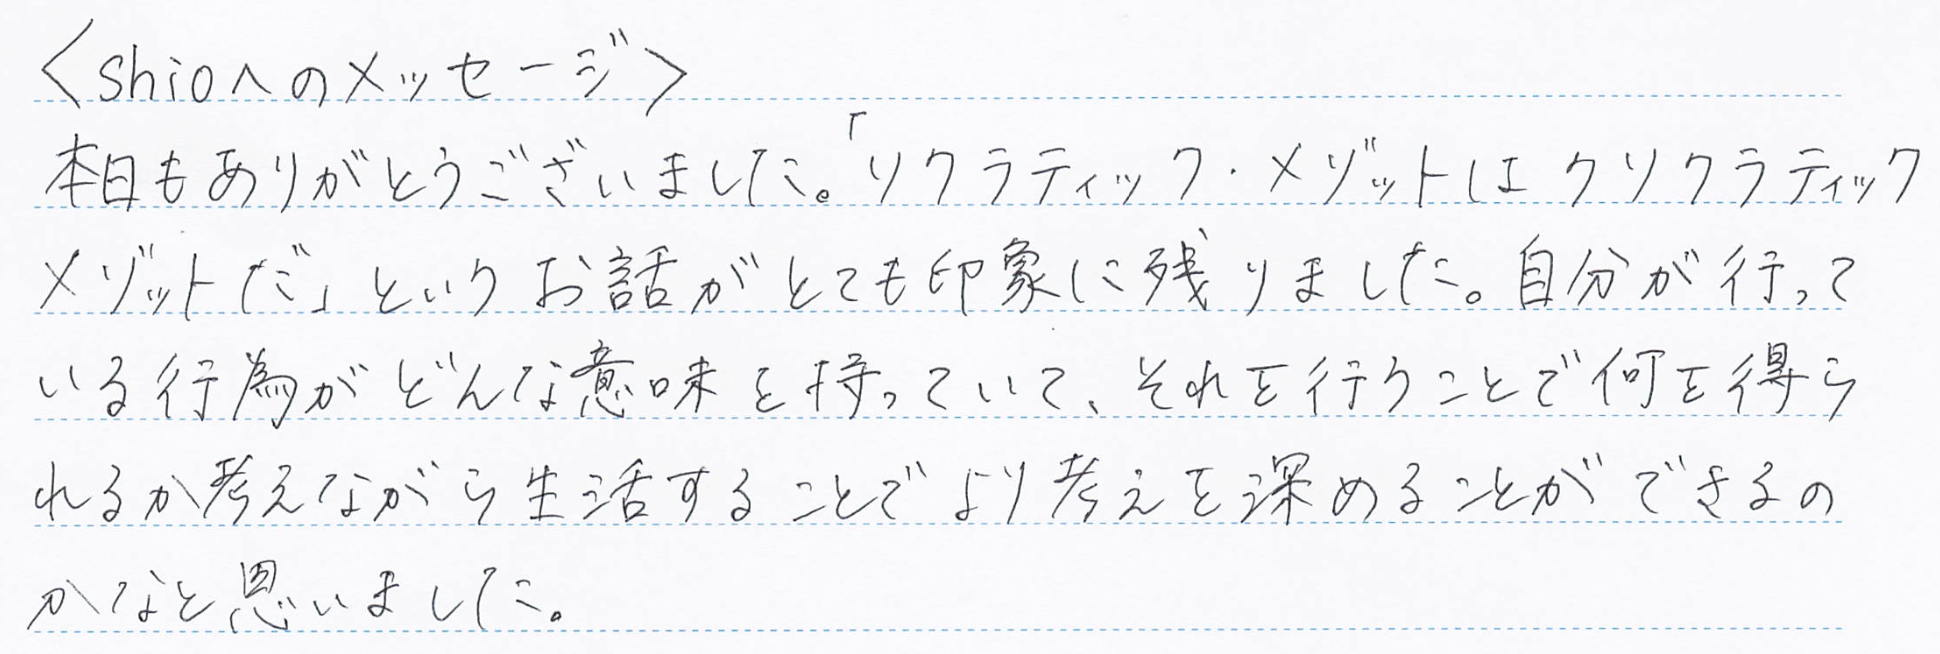 <shioへのメッセージ>
本日もありがとうございました。「ソクラティック・メゾットはクソクラティック
メゾットだ」というお話がとても印象に残りました。自分が行って
いる行為がどんな意味を持っていて、それを行うことで何を得ら
れるか考えながら生活することでより考えを深めることができるの
かなと思いました。